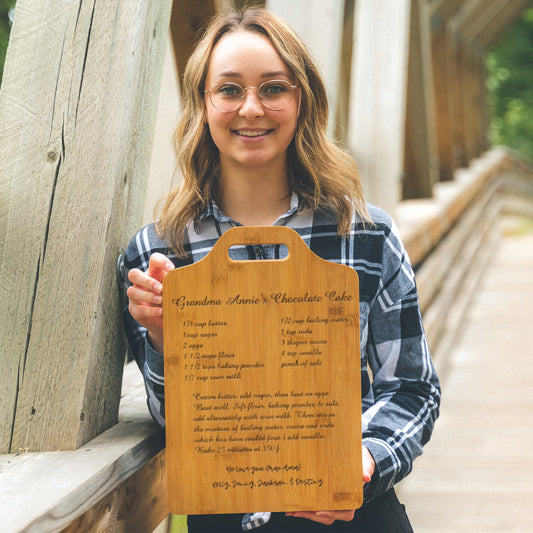 Grandma Annie's Chocolate Cake
1/4 cup butter
1 cup sugar
2 eggs
1 1/2 cups flour
1 1/2 tsps baking powder
1/2 cup sour milk
1/2 cup boiling water
1 tsp soda
3 tbspns cocoa
1 tsp vanilla
pinch of salt
Cream butter, add sugar, then beat in eggs.
Beat well. Sift flour, baking powder & salt,
add alternately with sour milk. Then stir in
the mixture of boiling water, cocoa and soda
which has been cooled first & add vanilla.
Bake 25 minutes at 350 F.
We love you Grandma!
Jenny, Jackson, & Destiny